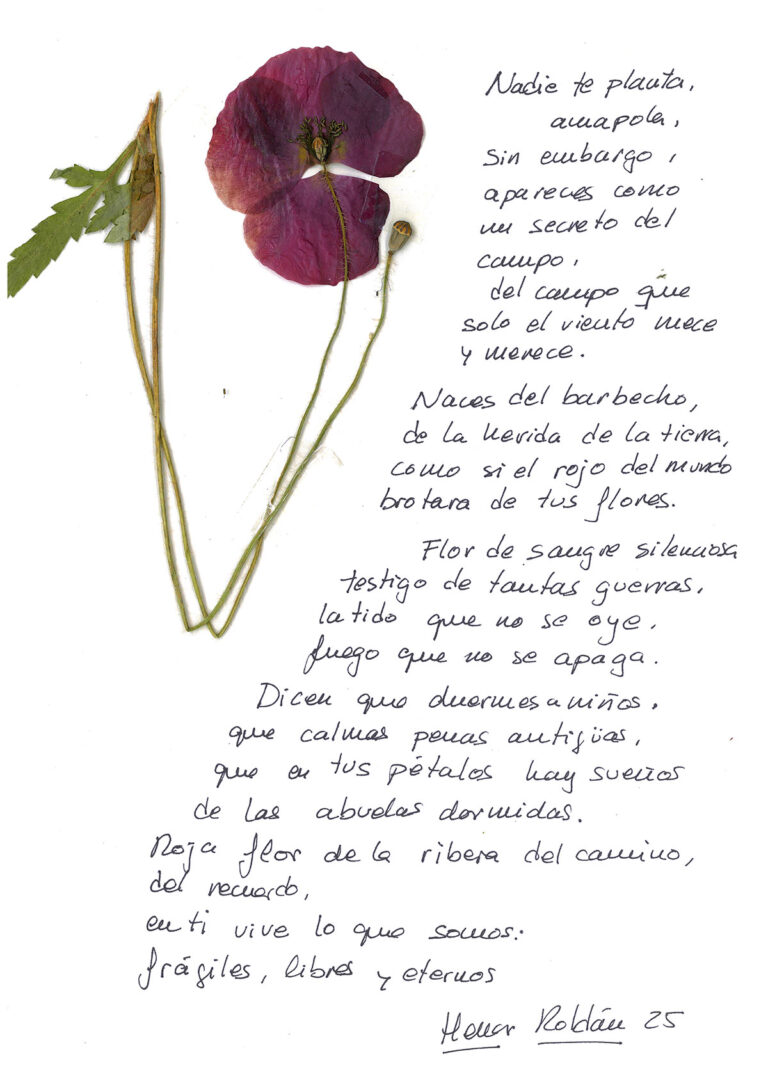 Nadie te planta,
amapola,
sin embargo,
apareces como
un secreto del
campo,
del campo que
solo el viento mece
y merece.
Naces del barbecho,
de la herida de la tierra,
como si el rojo del mundo
brotara de tus flores.
Flor de sangre silenciosa
testigo de tantas guerras,
latido que no se oye,
fuego que no se apaga.
Dicen que duermes a niños,
que calmas penas antigüas,
que en tus pétalos hay sueños
de las abuelas dormidas.
Roja flor de la ribera del camino,
del recuerdo,
en ti vive lo que somos:
frágiles, libres y eternos
Henar Roldán 25